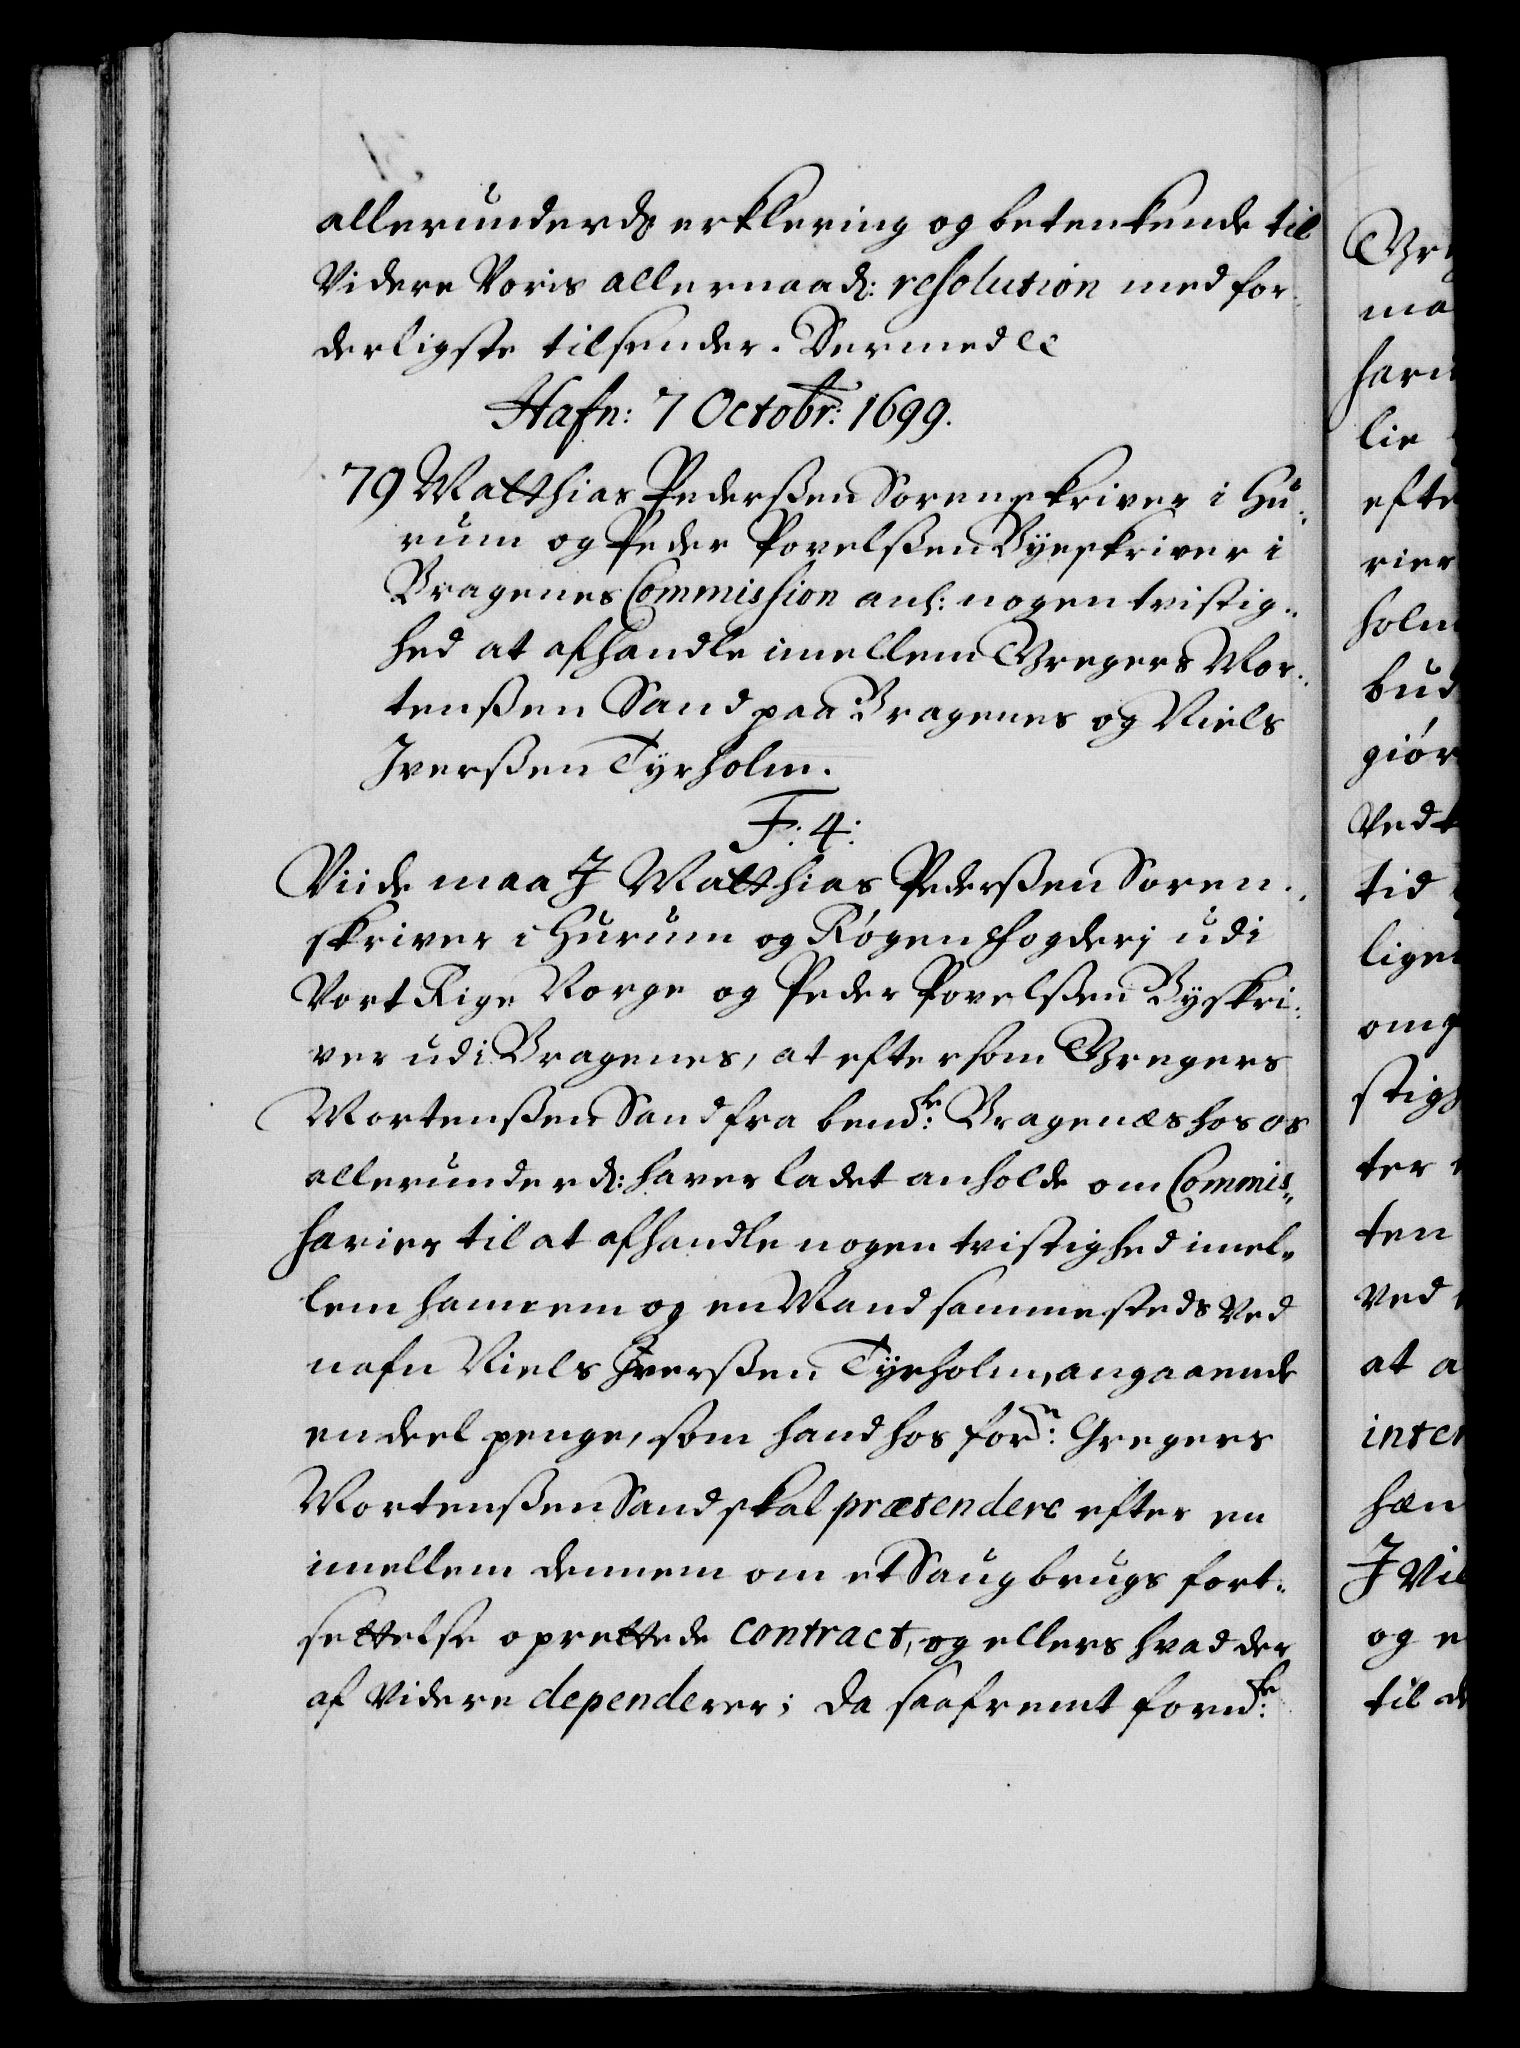 allerunderd: erklering og betenkende til
Videre Voris allernaad: resolution med for-
derligste tilsender. Dermed &c
Hafn: 7 Octobr: 1699.
79 Matthias Pederßen Sorenskriver i Hu-
rum og Peder Povelßen Byeskriver i
Bragenes Commission anl: nogen tvistig-
hed at afhandle imellem Gregers Mor-
tenßen Sand paa Bragenes og Niels
Iverßen Tyrholm.
F: 4:
Viide maa I Matthias Pederßen Soren-
skriver i Hurum og Røgens fogderj udi
Vort Rige Norge og Peder Povelßen Byskri-
ver udi Bragenes, at eftersom Gregers
Mortenßen Sand fra bemte: Bragenæs hos os
allerunderd: haver ladet anholde om Commis-
sarier til at afhandle nogen tvistighed imel-
lem hannem og en Mand sammesteds Ved
nafn Niels Iverßen Tyrholm, angaaende
en deel penge, som hand hos forn: Gregers
Mortenßen Sand skal prætendere efter en
imellem dennem om et Saugbrugs fort-
settelse oprettede contract, og ellers hvad der
af Videre dependerer; Da saafremt fornte: